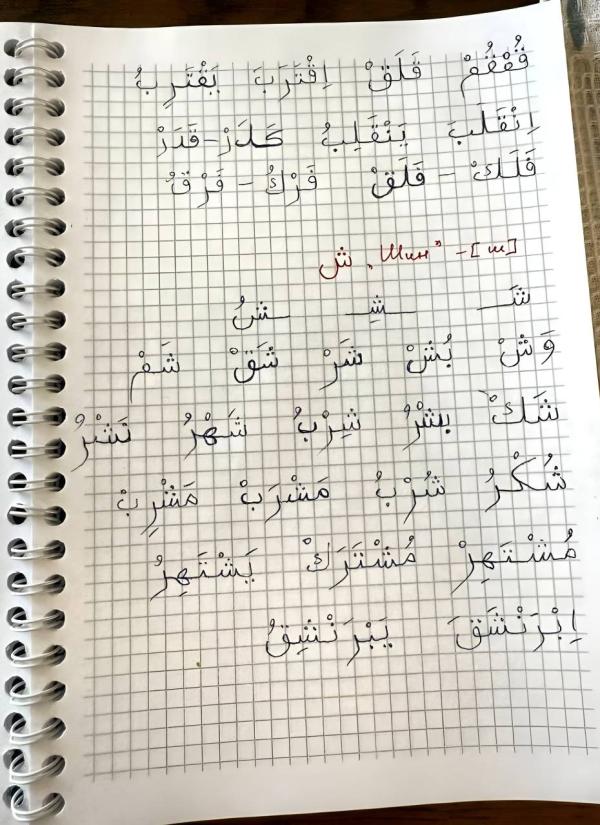 قُمْقُمْ قَلَقْ اِقْتَرَبَ يَقْتَرِبُ
اِنْقَلَبَ يَنْقَلِبُ كَدَرْ - قَدَرْ
فَلَكْ - فَلَقْ فَرْكُ - فَرْقُ
ش "Шин" - [ш]
شَـ ـشِـ ـشُ
وَشْ بُشْ شَرْ شَقْ شَمْ
شَكْ بِشْرُ شِرْبُ شَهْرُ نَشْرُ
شُكْرُ شُرْبُ مَشْرَبْ مَشْرِبْ
مُشْتَهِرْ مُشْتَرَكْ يَشْتَهِرُ
اِبْرَنْشَقَ يَبْرَنْشِقُ